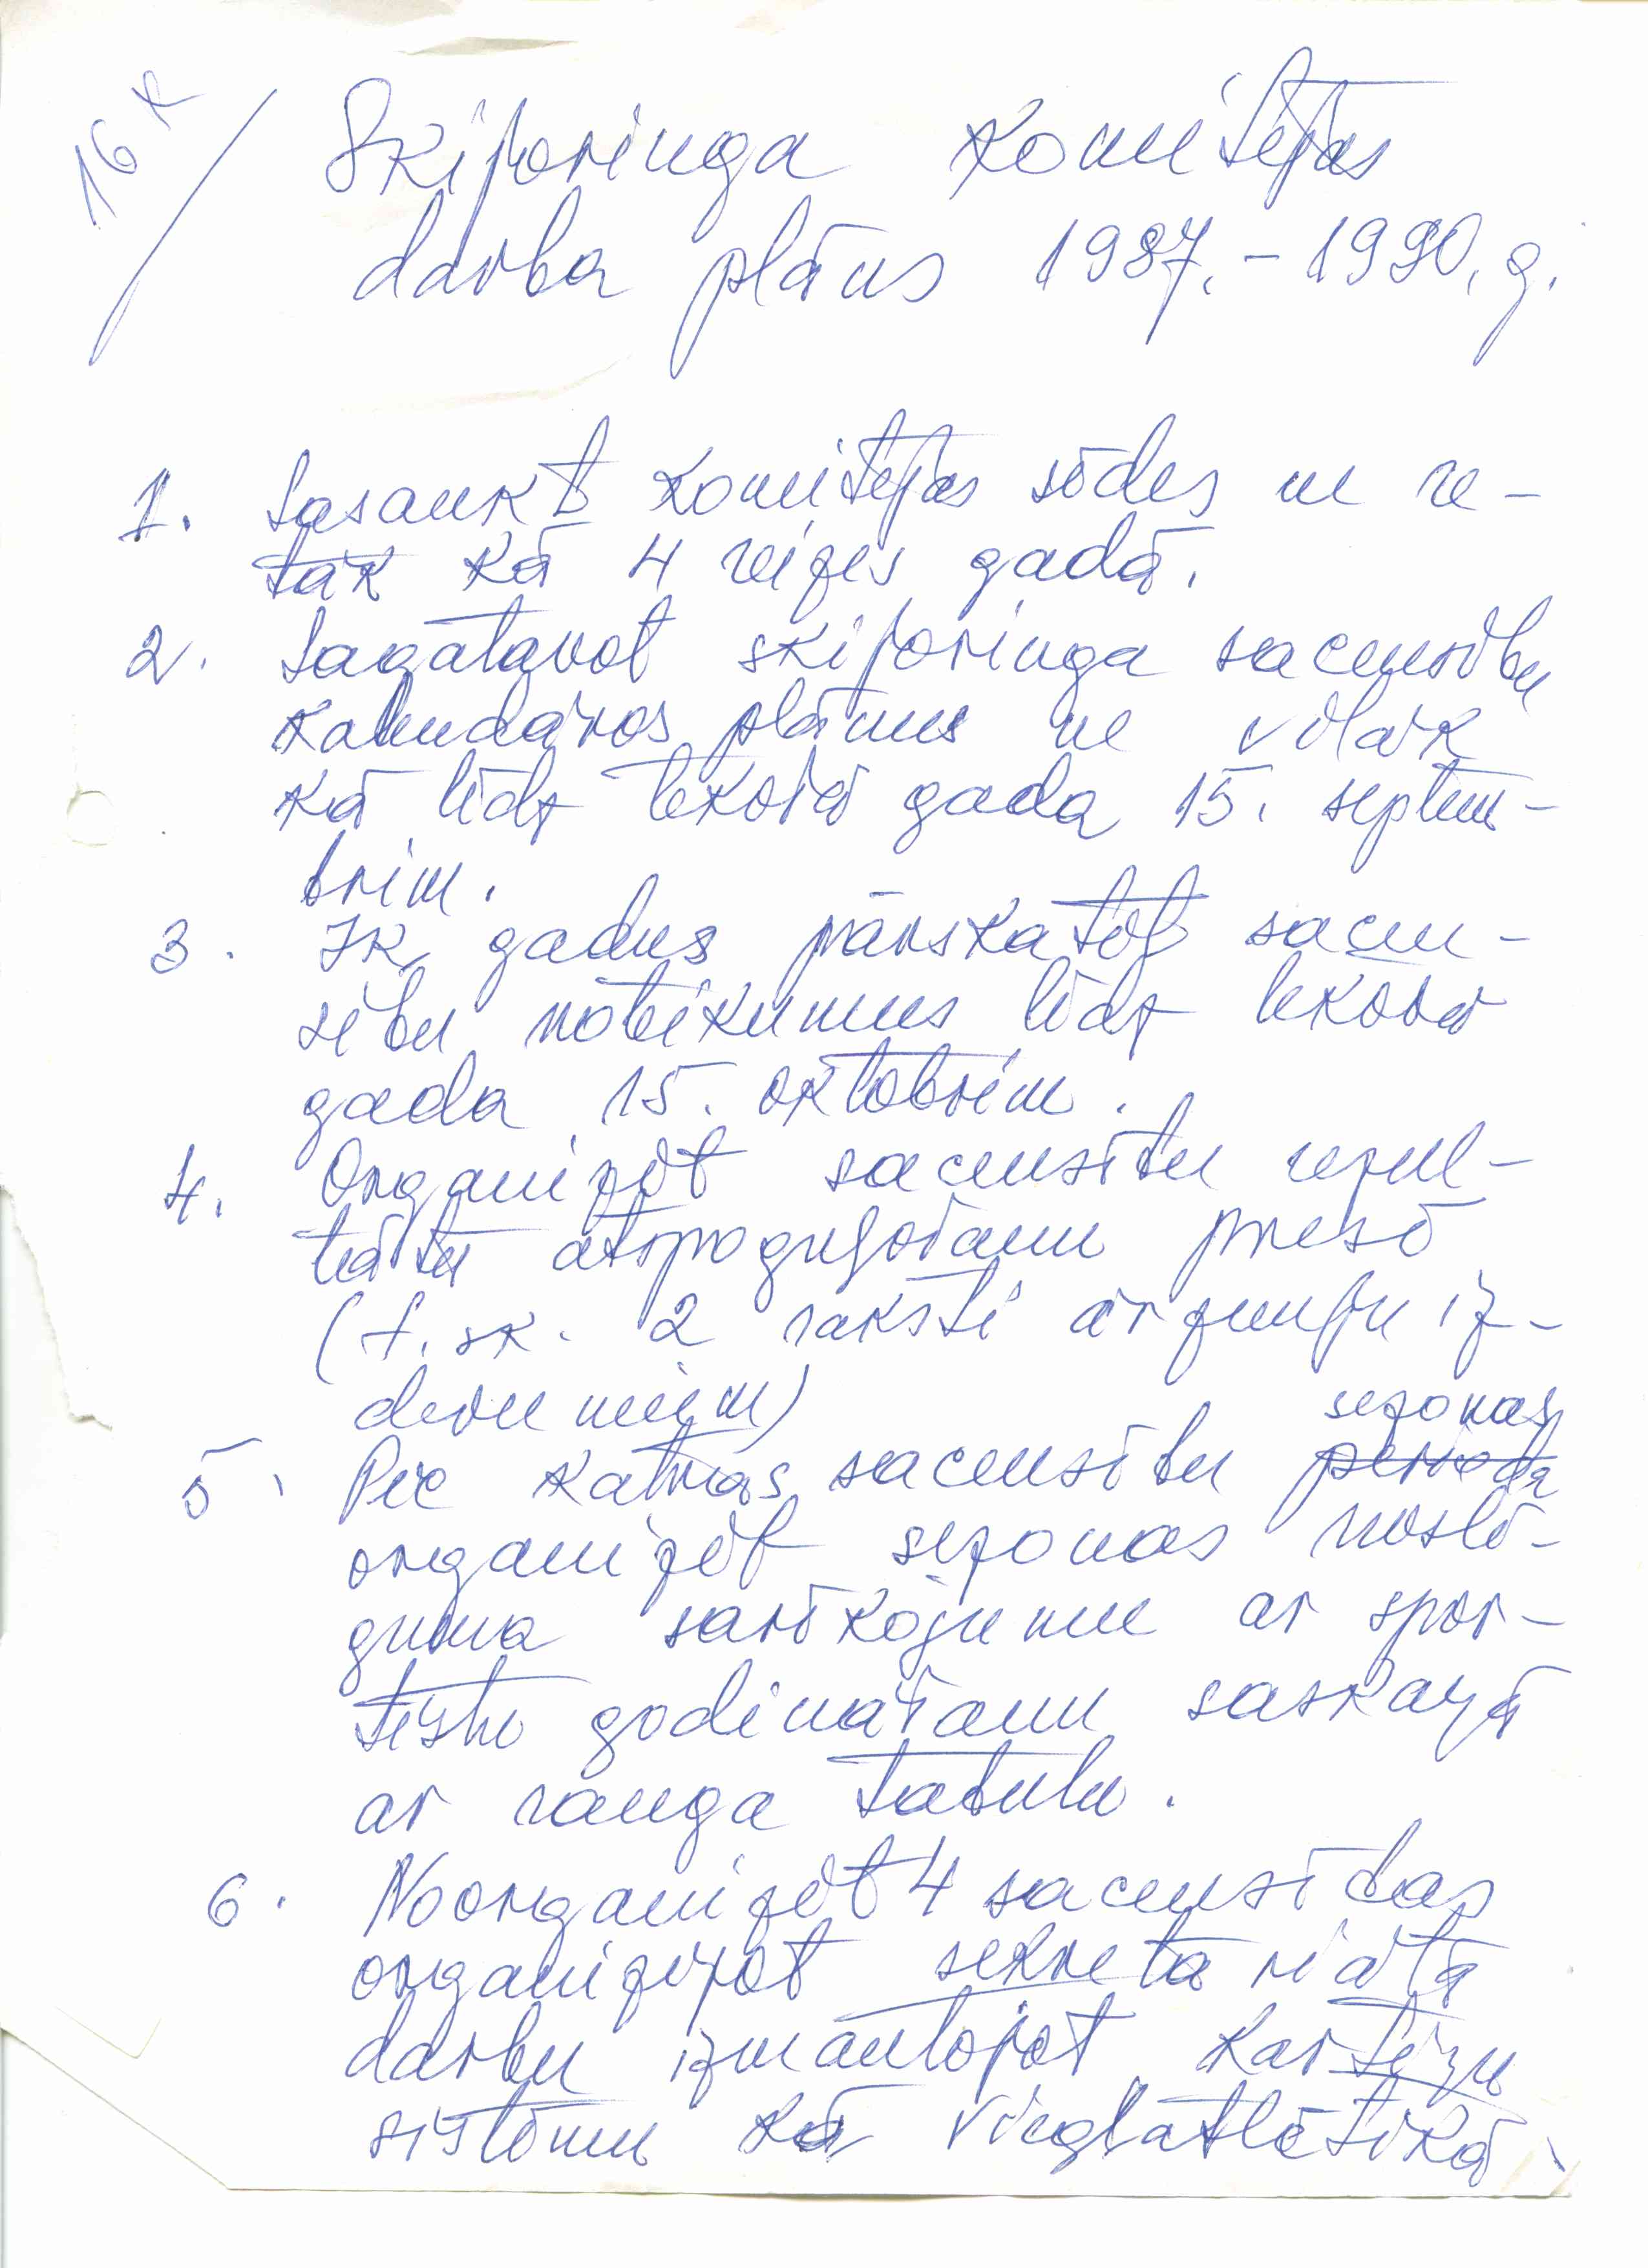 16x
Skijoringa komitejas
darba plāns 1987.-1990.g.
1. Sasaukt komitejas sēdes ne re-
tāk kā 4 reizes gadā.
2. Sagatavot skijoringa sacensību
kalendāros plānus ne vēlāk
kā līdz tekošā gada 15. septem-
brim.
3. Ik gadus pārskatīt sacen-
sību noteikumus līdz tekošā
gada 15. oktobrim.
4. Organizēt sacensību rezul-
tātu atspoguļošanu presē
(t. sk. 2 raksti ārzemju iz-
devumiem)
sezonas
5. Pēc katras sacensību perioda
organizēt sezonas noslē-
guma sarīkojumu ar spor-
tistu godināšanu saskaņā
ar ranga tabulu.
6. Noorganizēt 4 sacensības
organizējot sekretariāta
darbu izmantojot kartiņu
sistēmu kā vieglatlētikā.